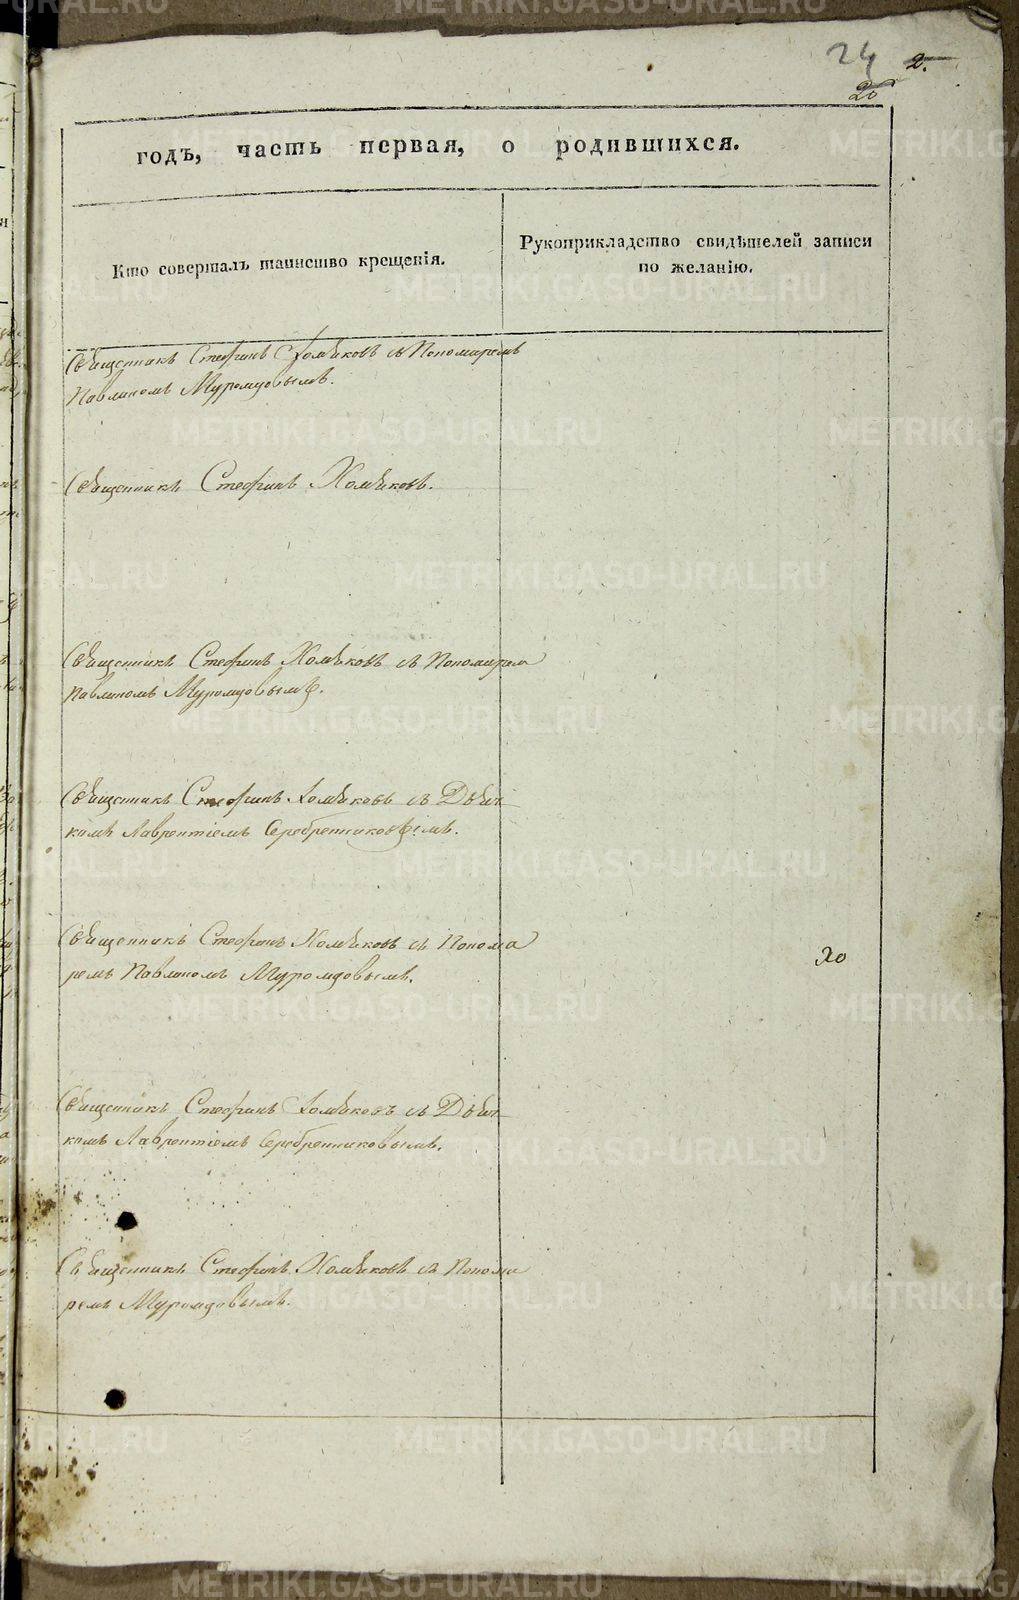 24 2.
20
годъ, часть первая, о родившихся.
Кто совершалъ таинство крещенія.
Рукоприкладство свидѣтелей записи
по желанію.
Священникъ Стефанъ Хомяковъ съ Пономаремъ
Павлиномъ Муромцовымъ.
Священникъ Стефанъ Хомяковъ.
Священникъ Стефанъ Хомяковъ съ Пономарем
Павлиномъ Муромцовымъ.
Священникъ Стефанъ Хомяковъ съ Дьяч-
комъ Лаврентіемъ Серебренниковымъ.
Священникъ Стефанъ Хомяковъ съ Понома
ремъ Павлиномъ Муромцовымъ.
20
Священникъ Стефанъ Хомяковъ съ Дьяч-
комъ Лаврентіемъ Серебренниковымъ.
Священникъ Стефанъ Хомяковъ съ Понома
ремъ Муромцовымъ.
METRIKI.GASO-URAL.RU